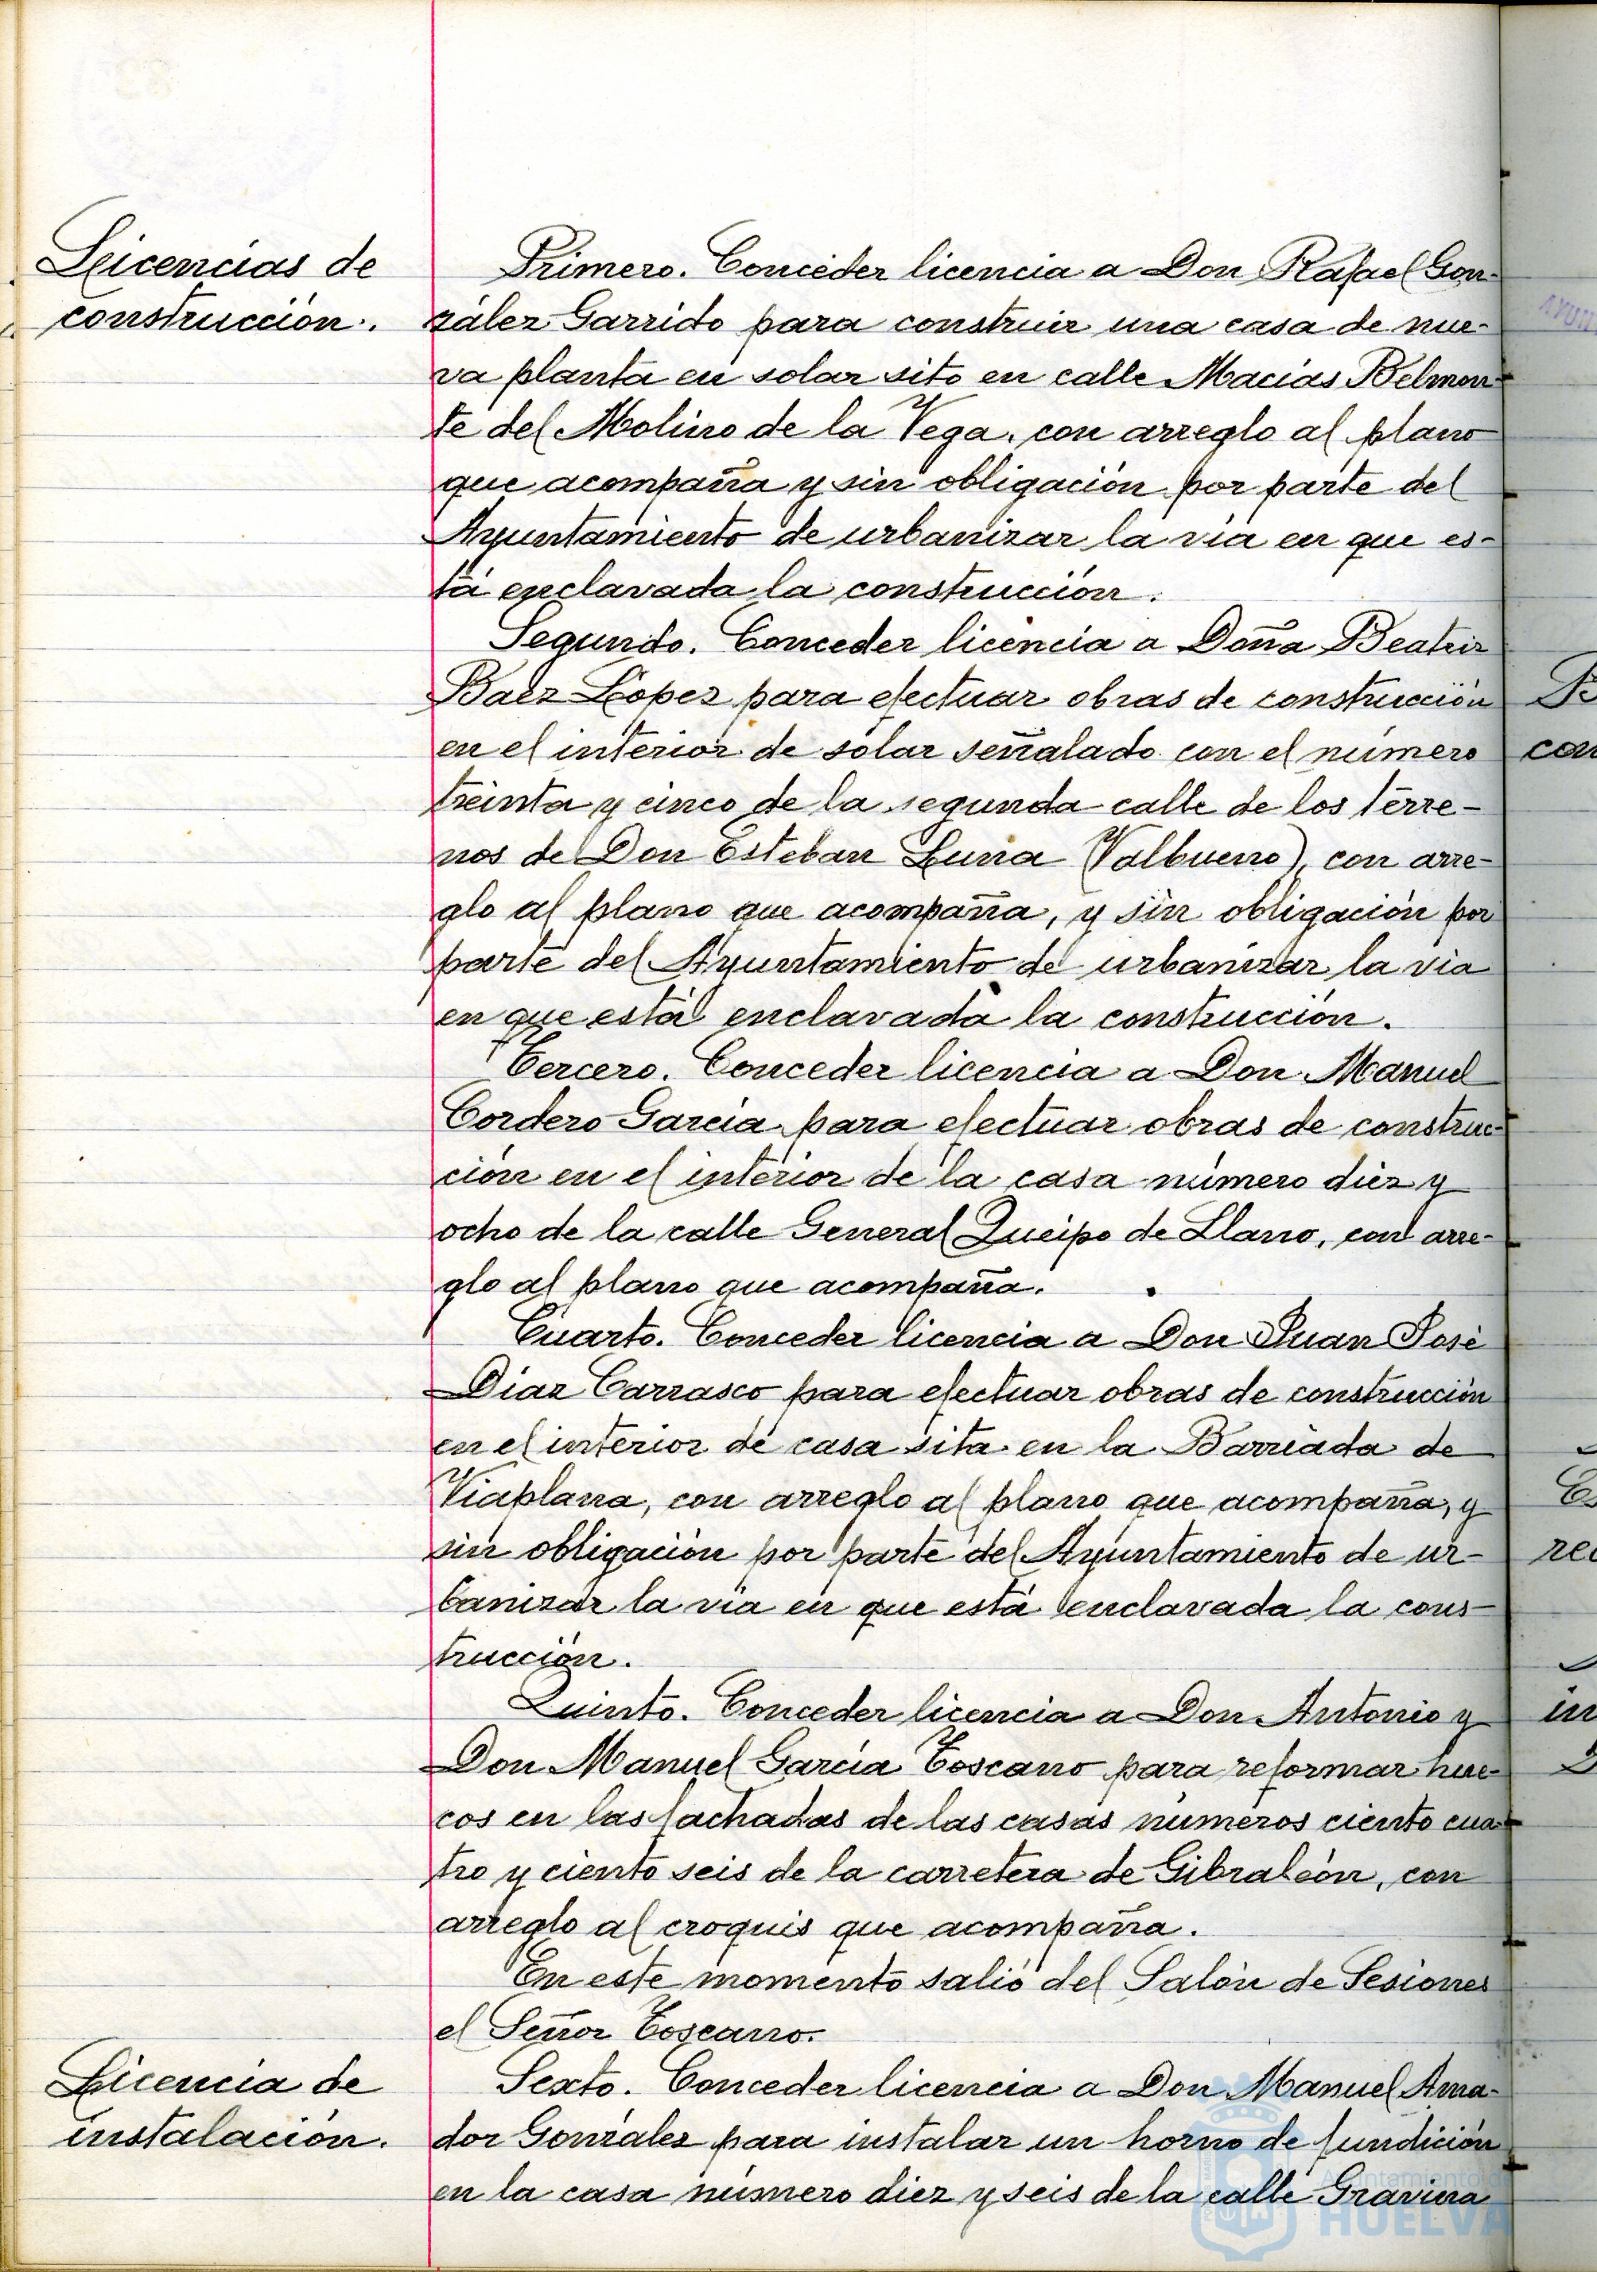 Licencias de
construcción.
Primero. Conceder licencia a Don Rafael Gon-
zález Garrido para construir una casa de nue-
va planta en solar sito en calle Macías Belmon-
te del Molino de la Vega, con arreglo al plano
que acompaña y sin obligación por parte del
Ayuntamiento de urbanizar la vía en que es-
tá enclavada la construcción.
Segundo. Conceder licencia a Doña Beatriz
Baez López para efectuar obras de construcción
en el interior de solar señalado con el número
treinta y cinco de la segunda calle de los terre-
nos de Don Esteban Luna (Valbueno), con arre-
glo al plano que acompaña, y sin obligación por
parte del Ayuntamiento de urbanizar la vía
en que está enclavada la construcción.
Tercero. Conceder licencia a Don Manuel
Cordero García para efectuar obras de construc-
ción en el interior de la casa número diez y
ocho de la calle General Queipo de Llano, con arre-
glo al plano que acompaña.
Cuarto. Conceder licencia a Don Juan José
Díaz Carrasco para efectuar obras de construcción
en el interior de casa sita en la Barriada de
Viaplana, con arreglo al plano que acompaña, y
sin obligación por parte del Ayuntamiento de ur-
banizar la vía en que está enclavada la cons-
trucción.
Quinto. Conceder licencia a Don Antonio y
Don Manuel García Toscano para reformar hue-
cos en las fachadas de las casas números ciento cua-
tro y ciento seis de la carretera de Gibraleón, con
arreglo al croquis que acompaña.
En este momento salió del Salón de Sesiones
el Señor Toscano.
Licencia de
instalación.
Sexto. Conceder licencia a Don Manuel Ama-
dor González para instalar un horno de fundición
en la casa número diez y seis de la calle Gravina
Ayuntamiento de
HUELVA